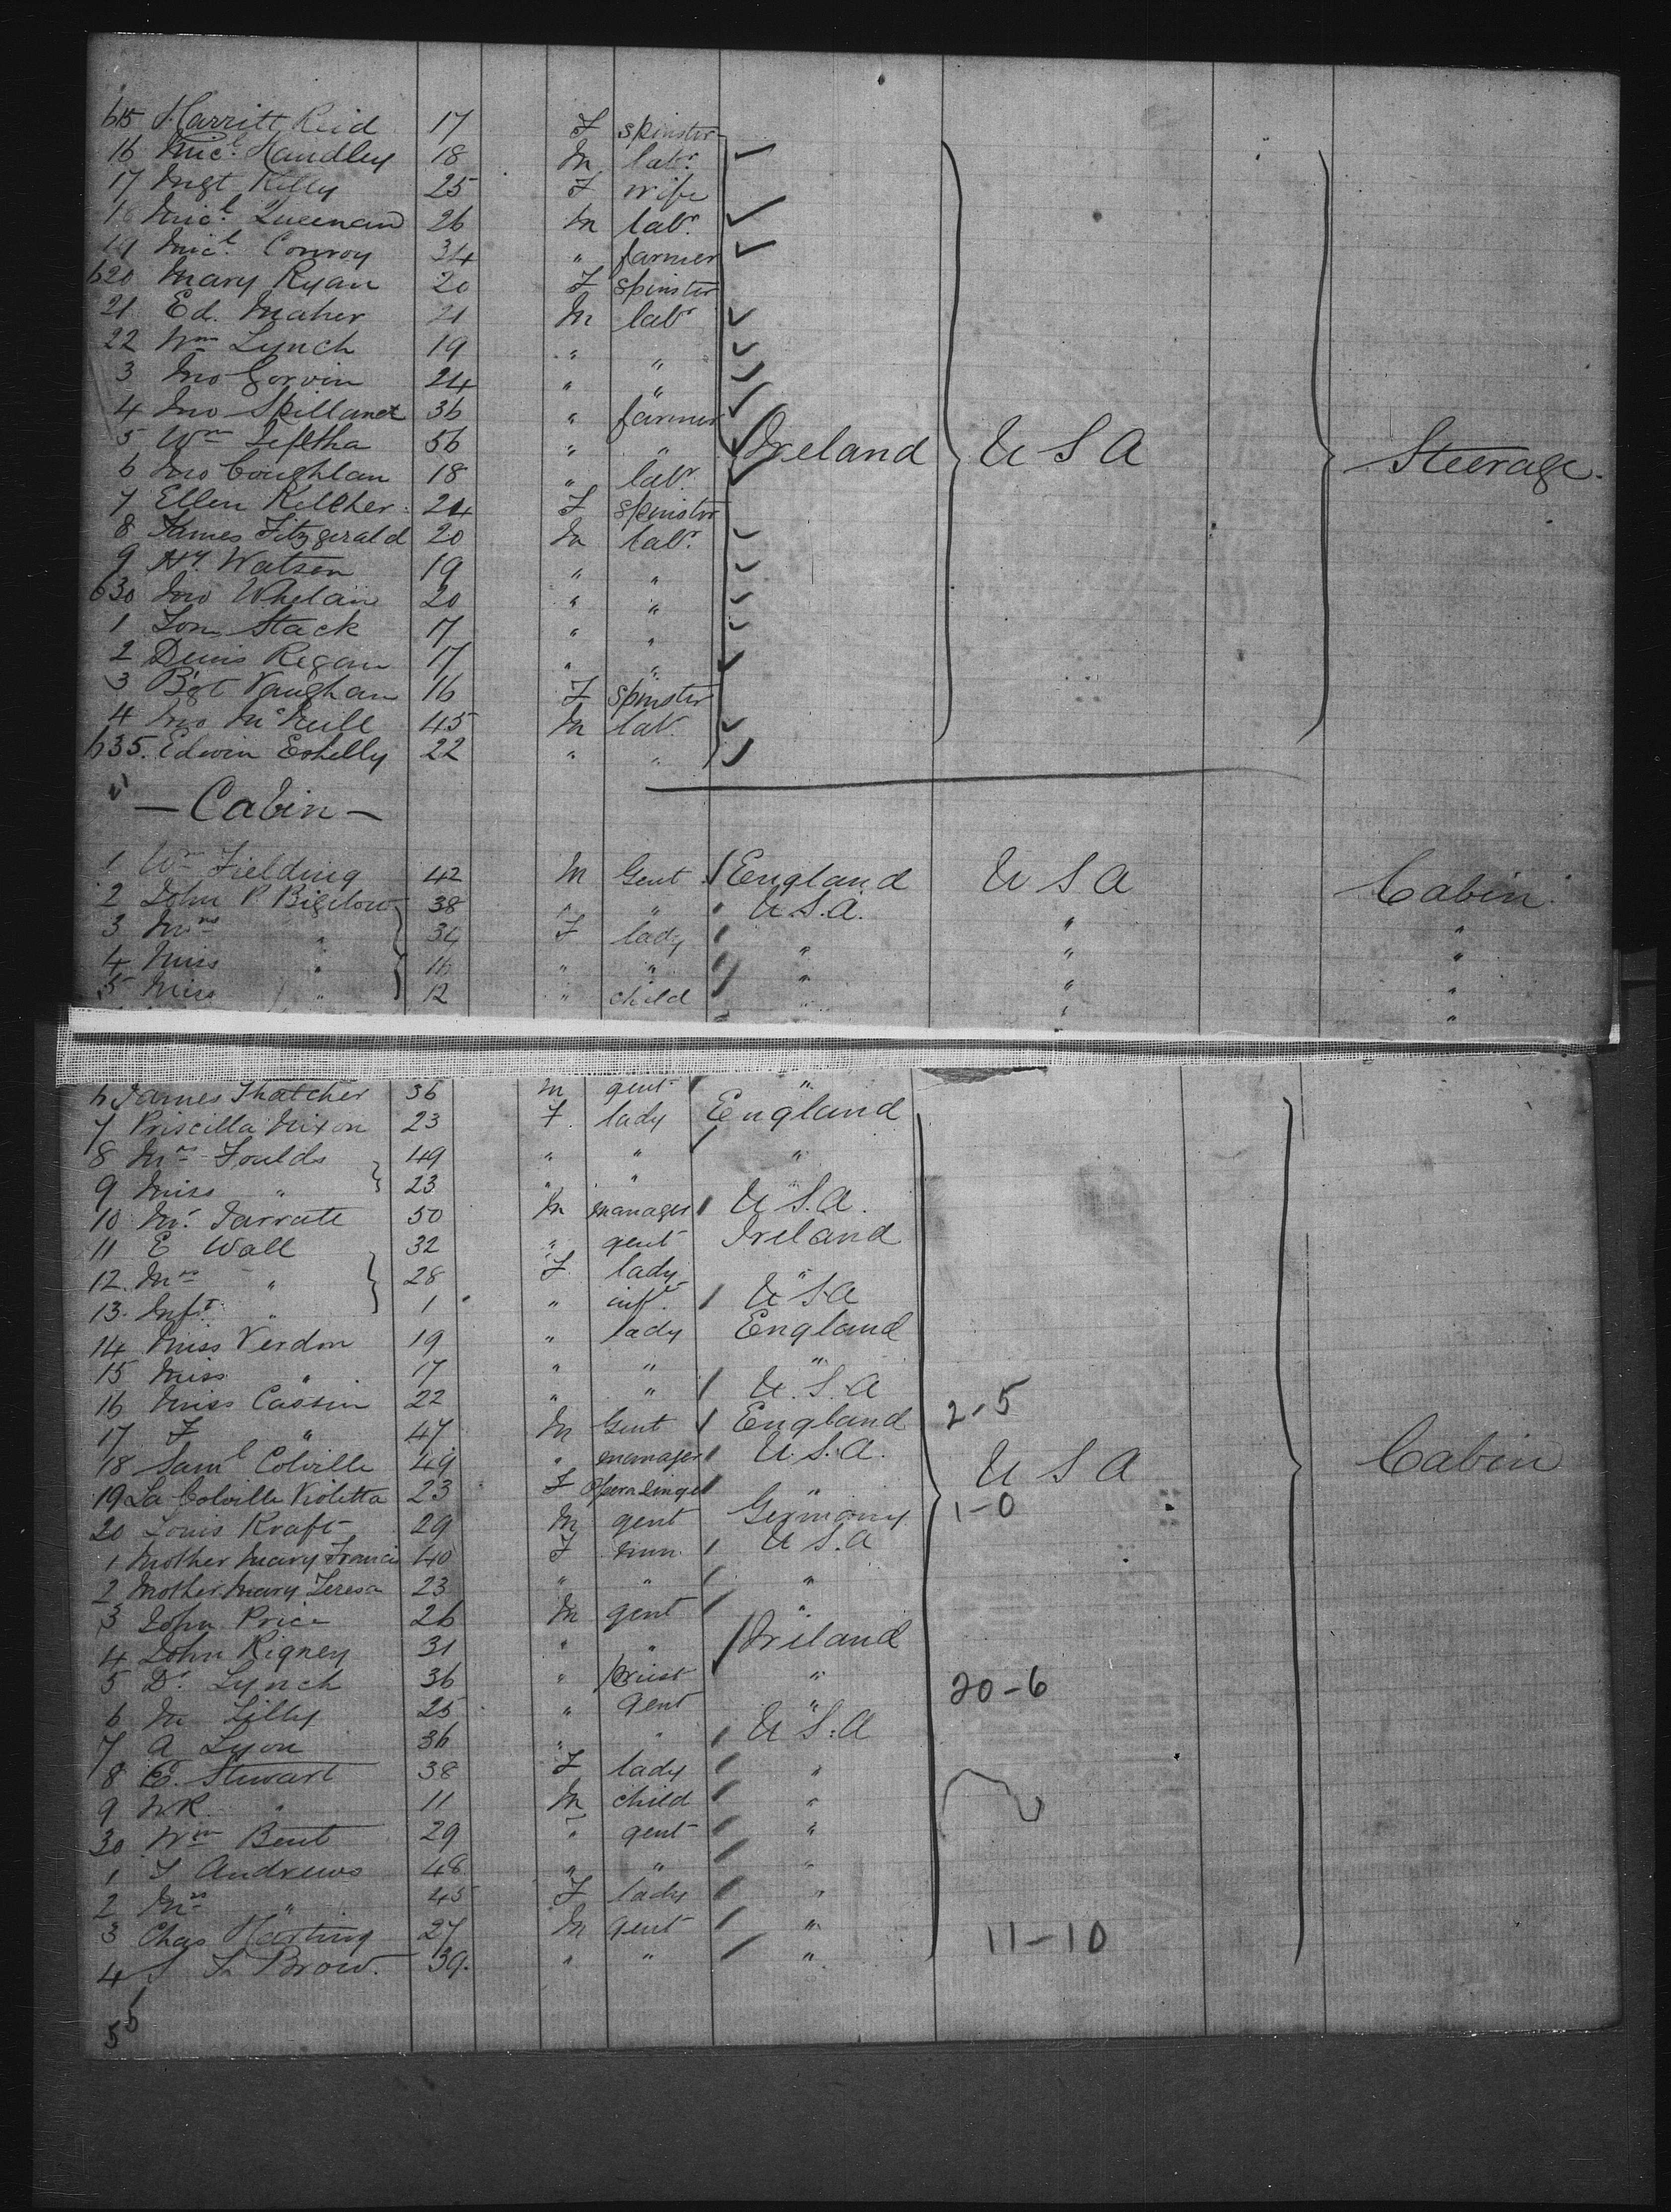 615 Harritt Reid 17 F spinster
16 Micl Handley 18 M labr
17 Mgt Kelly 25 F wife
18 Micl Queenan 26 M labr
19 Micl Conroy 34 " farmer
620 Mary Ryan 20 F spinster
21 Ed. Maher 21 M labr
22 Wm Lynch 19 " "
3 Jno Gorvin 24 " "
4 Jno Spillane 36 " farmer
5 Wm 56 " " Ireland U S A Steerage.
6 Jno Coughlan 18 " labr
7 Ellen Kelcher 24 F spinster
8 James Fitzgerald 20 M labr
9 Hy. Watson 19 " "
630 Jno Whelan 20 " "
1 Tom Stack 17 " "
2 Denis Regan 17 " "
3 Bgt Vaughan 16 F spinster
4 Jno McNeill 45 M labr
635. Edwin 22 " "
— Cabin —
1 Wm Fielding 42 M Gent England U S A Cabin
2 John P. Bigelow 38 " " U.S.A. " "
3 Mrs " 34 F lady " " "
4 Miss " 16 " " " " "
5 Miss " 12 " child " " "
6 James Thatcher 36 M gent "
7 Priscilla Nixon 23 F. lady England
8 Mrs Foulds 49 " " "
9 Miss " 23 " "
10 Mr. Jarrate 50 M manager U S.A.
11 E Wall 32 " gent Ireland
12. Mrs " 28 F lady "
13. Inft " 1 " inft U S A
14 Miss Verdon 19 " lady England
15 Miss " 17 " " "
16 Miss Cassin 22 " " U.S.A 2-5
17 F " 47 M Gent England
18 Saml Colville 49 " manager U.S.A. U S A Cabin
19 La Colville Violetta 23 F Opera singer "
20 Louis Kraft 29 M gent Germany 1-0
1 Mother Mary Francis 40 F nun U S.A
2 Mother Mary Teresa 23 " " "
3 John Price 26 M gent "
4 John Rigney 31 " " Ireland
5 Dr. Lynch 36 " priest " 20-6
6 M Lilly 25 " gent "
7 A Lyon 36 " " U.S.A
8 E. Stewart 38 F lady "
9 W R. " 11 M child "
30 Wm Bent 29 " gent "
1 J Andrews 48 " " "
2 Mrs " 45 F lady "
3 Chas Harting 27 M gent " 11-10
4 S F Brow. 39. " " "
55